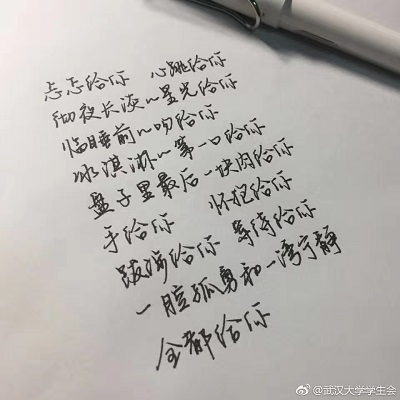 忐忑给你 心跳给你
彻夜长谈~星光给你
临睡前~吻给你
冰淇淋~第一口给你
盘子里最后一块肉给你
手给你 怀抱给你
跋涉给你 等待给你
一腔孤勇和一湾宁静
全都给你
@武汉大学学生会